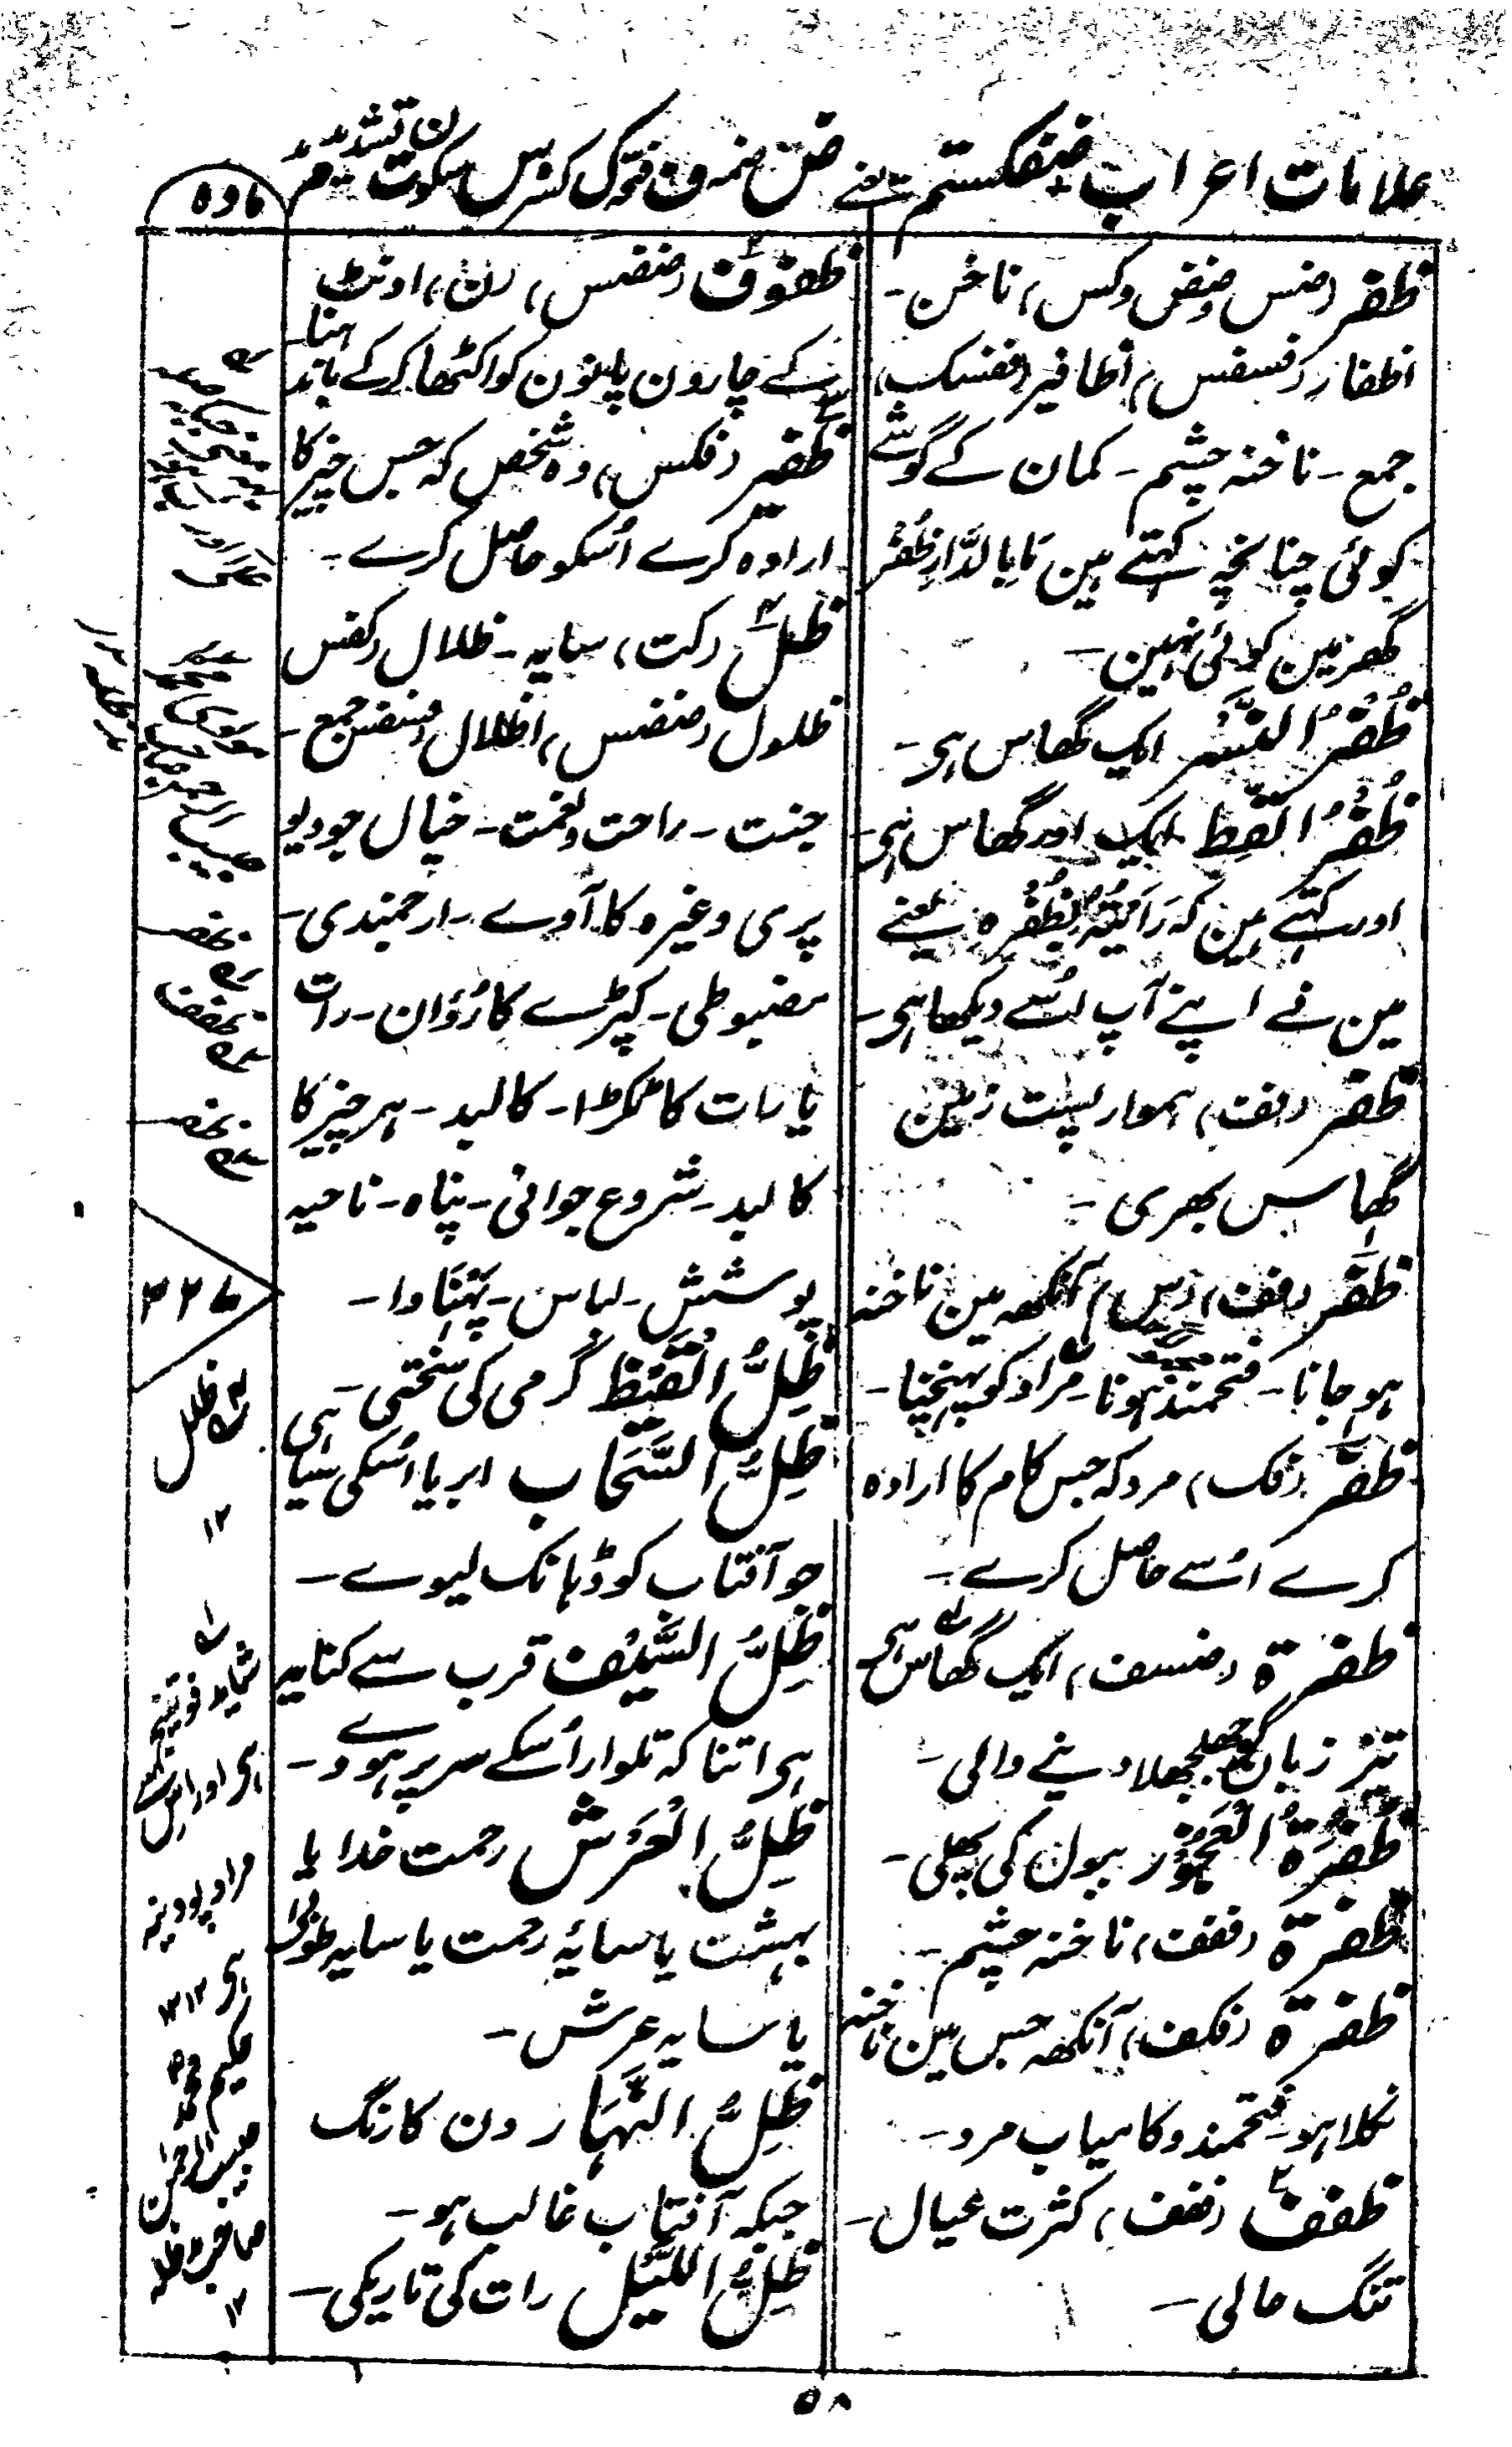 علامات اعراب ضفکستم یعنے ض ضمہ ف فتحہ ک کسرہ س سکون ت تشدید م
مادہ
ظفر (ضس وضض وکس) ناخن۔
اظفار (فسفس) اظافیر (ففسک)
جمع۔ ناخنہ چشم۔ کمان کے گوشے
کوئی چنانچہ کہتے ہین مَا بِالدَّارِ ظُفُرٌ
گھر مین کوئی نہین۔
ظُفْرُ النَّسْر ایک گھاس ہی۔
ظُفْرُ القِط ایک اور گھاس ہی۔
اور کہتے ہین کہ رَأَیْتُہٗ بِظُفْرِہٖ یعنے
مین نے اپنے آپ اُسے دیکھا ہی۔
ظفر (فف) ہموار پست زمین
گھاس بھری۔
ظفر (فف)(س) آنکھہ مین ناخنہ
ہو جانا۔ فتحمند ہونا۔ مراد کو پہنچنا۔
ظفر (فک) مرد کہ جس کام کا ارادہ
کرے اُسے حاصل کرے۔
ظفرۃ (ضسف) ایک گھاس ہی
تیز زبان کو چھلچھلا دینے والی۔
ظُفْرَۃُ الْعَجُوْز ببول کی پھلی۔
ظفرۃ (ففف) ناخنہ چشم۔
ظفرۃ (فکف) آنکھہ جس مین ناخنہ
نکلا ہو۔ فتحمند و کامیاب مرد۔
ظفف (ففف) کثرت عیال۔
تنگ حالی۔
ظفوف (ضضس) (ن) اونٹ
کے چارون پانون کو اکٹھا کر کے باندہنا۔
ظفیر (فکس) وہ شخص کہ جس چیز کا
ارادہ کرے اُسکو حاصل کرے۔
ظل (کت) سایہ۔ ظلال (کفس)
ظلول (ضضس) اظلال (فسفس) جمع۔
جنت۔ راحت و نعمت۔ خیال جو دیو
پری وغیرہ کا آوے۔ ارجمندی۔
مضبوطی۔ کپڑے کا رُؤان۔ رات
یا رات کا ٹکڑا۔ کالبد۔ ہر چیز کا
کالبد۔ شروع جوانی۔ پناہ۔ ناحیہ
پوشش۔ لباس۔ پہناوا۔
ظِلُّ الْقَیْظ گرمی کی سختی۔
ظِلُّ السَّحَاب ابر یا اُسکی سیاہی
جو آفتاب کو ڈہانک لیوے۔
ظِلُّ السَّیْف قرب سے کنایہ
ہی اتنا کہ تلوار اُسکے سر پر ہووے۔
ظِلُّ الْعَرْش رحمت خدا یا
بہشت یا سایۂ رحمت یا سایہ طوبیٰ
یا سایہ عرش۔
ظِلُّ النَّہَار دن کا رنگ
جبکہ آفتاب غالب ہو۔
ظِلُّ اللَّیْل رات کی تاریکی۔
ظلل
۱۲
شاید فوتیج
ہی اور اس سے
مراد پودینہ
ہی ۱۲
حکیم محمد
حبیب الرحمن
صاحب مدظلہ
۱۲
۵۸